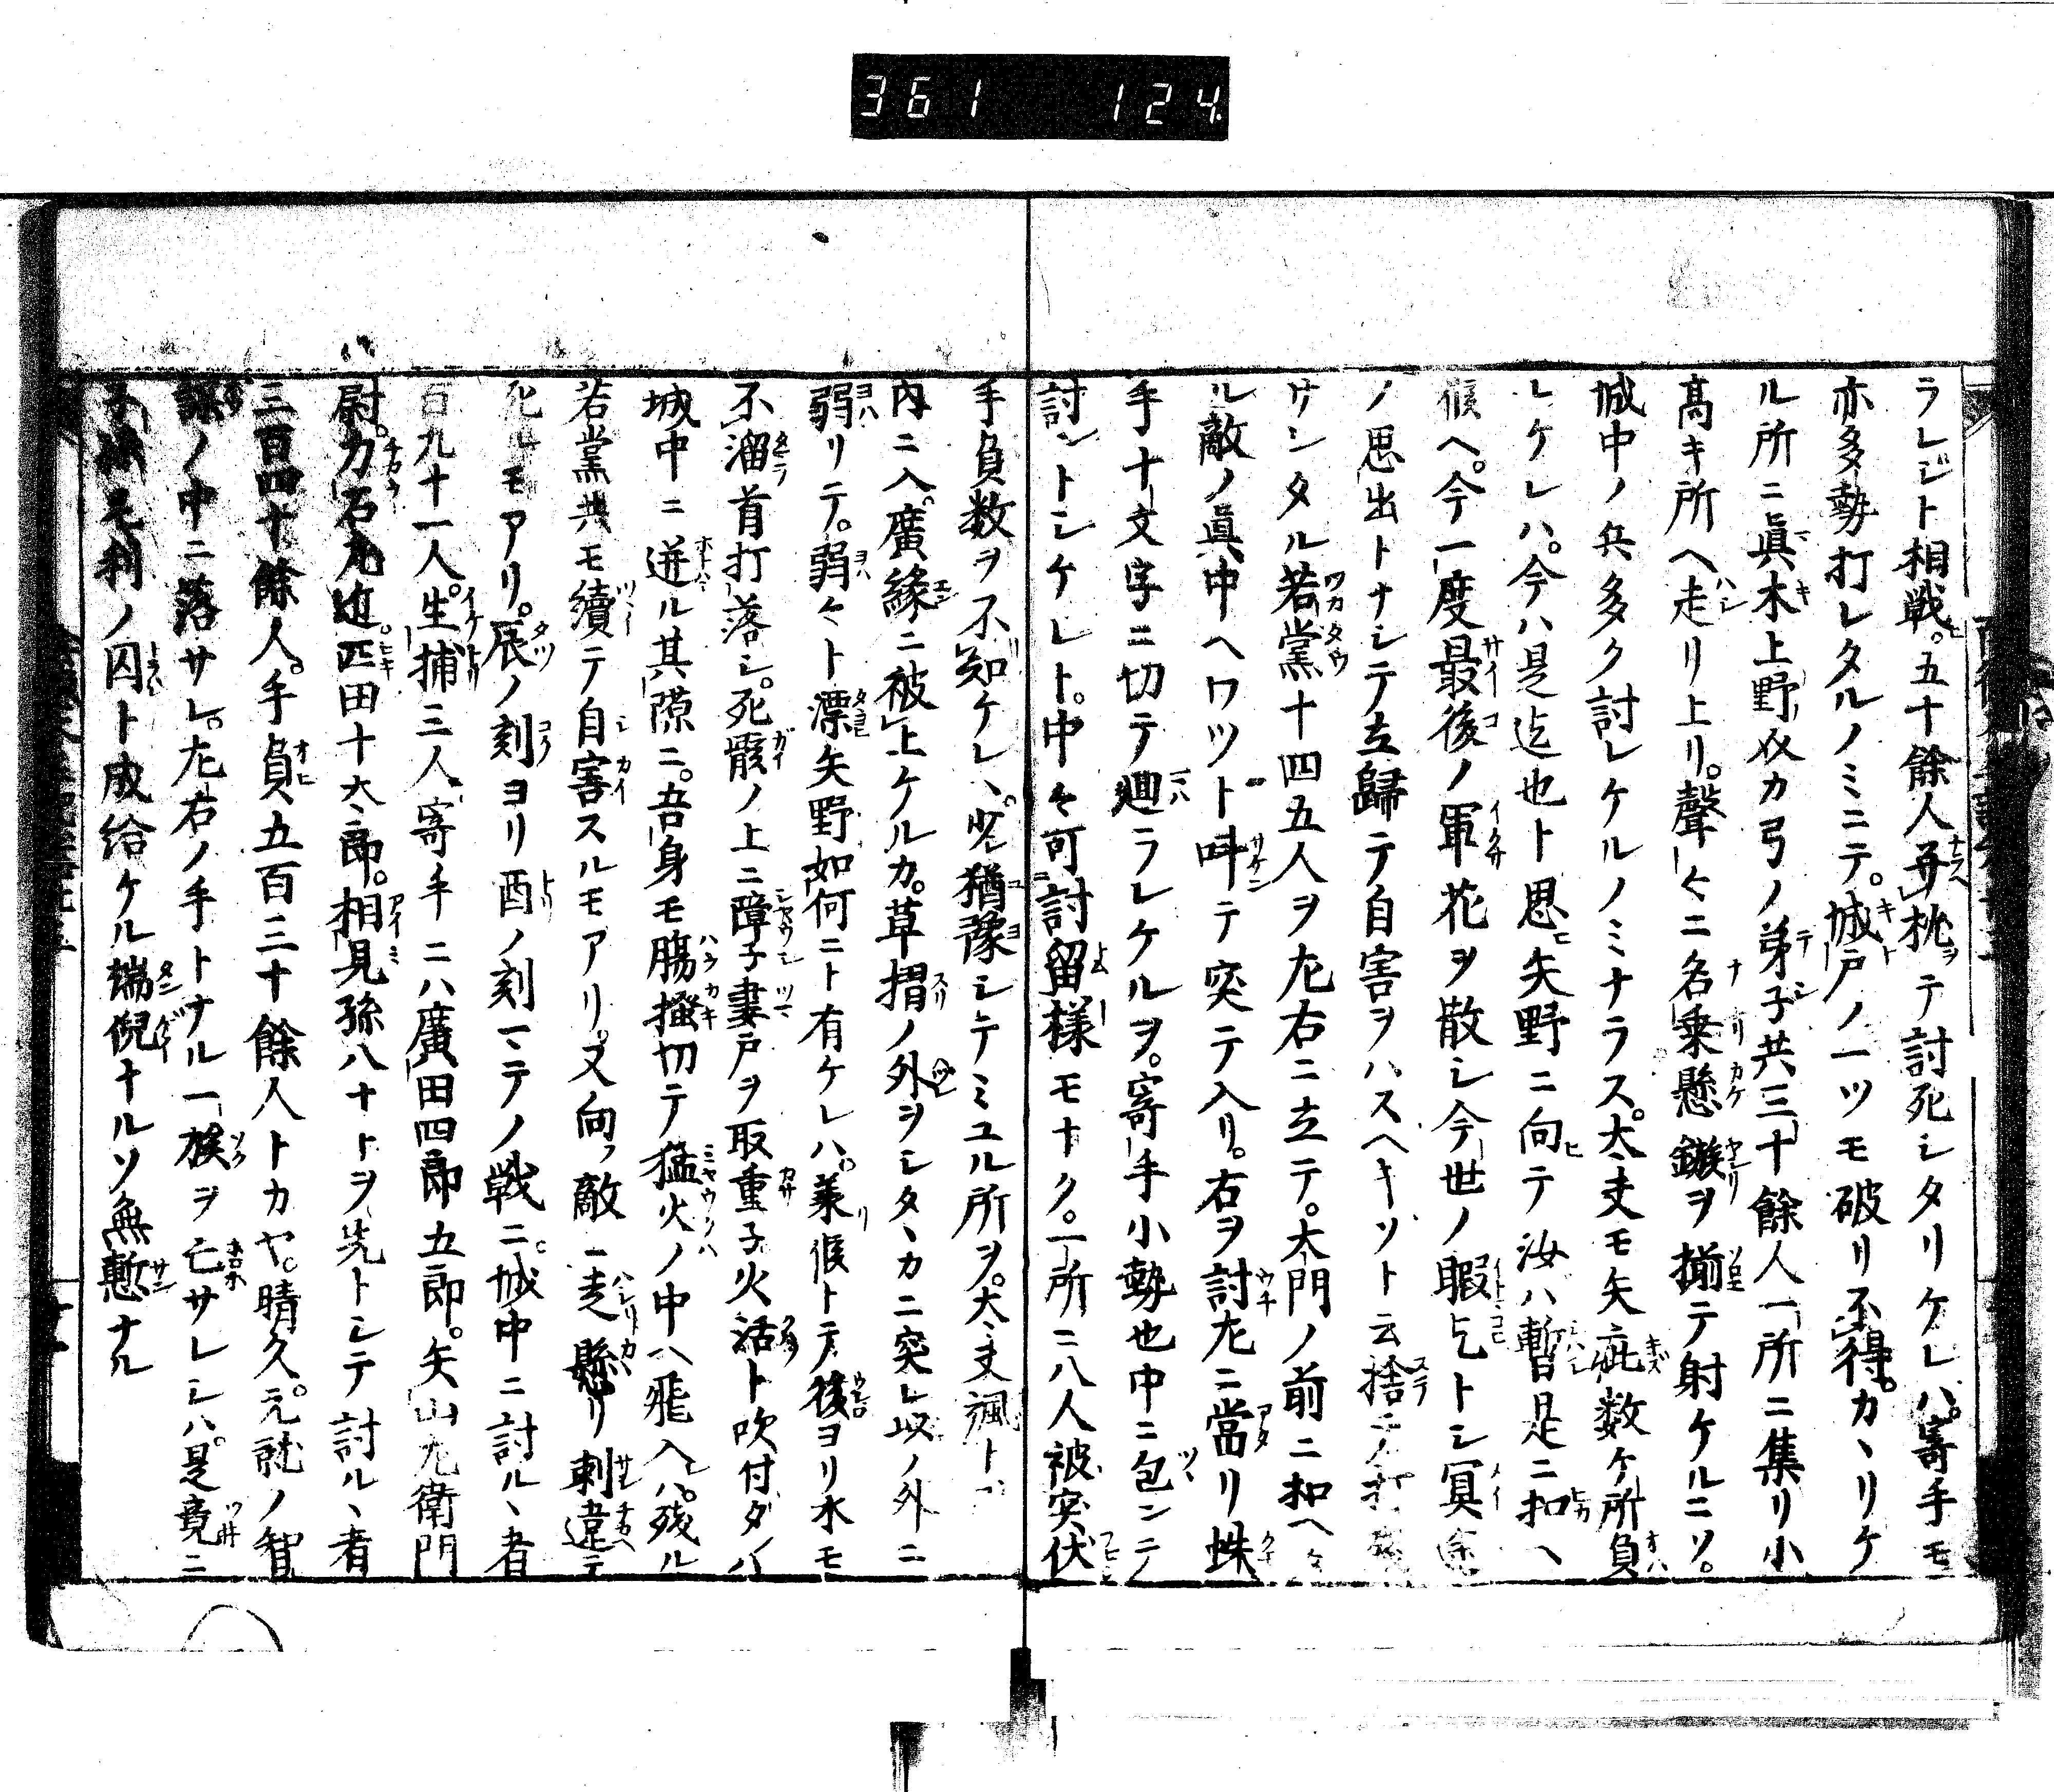 361 124
ラレジト相戦。五十餘人并枕テ討死シタリケレハ。寄手モ
亦多勢打レタルノミニテ。城戸ノ一ツモ破リ不得。カヽリケ
ル所ニ眞木上野丞カ弓ノ弟子共三十餘人一所ニ集リ小
髙キ所ヘ走リ上リ。聲々ニ名乗懸鏃ヲ揃テ射ケルニソ。
城中ノ兵多ク討レケルノミナラス。太夫モ矢疵数ケ所負
レケレハ。今ハ是迄也ト思矢野ニ向テ汝ハ暫是ニ扣ヘ
候ヘ。今一度最後ノ軍花ヲ散シ今世ノ暇乞トシ冥途
ノ思出トナシテ立歸テ自害ヲハスヘキソト云捨テ打
サンタル若黨十四五人ヲ左右ニ立テ。大門ノ前ニ扣ヘタ
ル敵ノ眞中ヘワツト呌テ突テ入リ。右ヲ討左ニ當リ蛛
手十文字ニ切テ廻ラレケルヲ。寄手小勢也中ニ包ンテ
討ントシケレト。中々可討留様モナク。一所ニ八人被突伏
手負数ヲ不知ケレハ。少猶豫シテミユル所ヲ。太夫颯ト
内ニ入。廣緣ニ被上ケルカ。草摺ノ外ヲシタヽカニ突レ以ノ外ニ
弱リテ。弱々ト漂矢野如何ニト有ケレハ。羕候トテ後ヨリ水モ
不溜首打落シ。死骸ノ上ニ障子妻戸ヲ取重子火活ト吹付ダハ
城中ニ迸ル其隙ニ。吾身モ膓搔切テ猛火ノ中ヘ飛入レハ。残ル
若黨共モ續テ自害スルモアリ。又向フ敵ニ走懸リ刺違テ
死ルモアリ。辰ノ刻ヨリ酉ノ刻マテノ戦ニ。城中ニ討ルヽ者
百九十一人。生捕三人寄手ニハ廣田四郎五郎。矢山左衛門
尉。力石九近。匹田十太郎。相見孫八ナトヲ先トシテ討ルヽ者
三百四十餘人。手負五百三十餘人トカヤ。晴久。元就ノ智
謀ノ中ニ落サレ。左右ノ手トナル一族ヲ亡サレシハ。是竟ニ
毛利ノ囚ト成給ケル端倪ナルソ無慙ナル